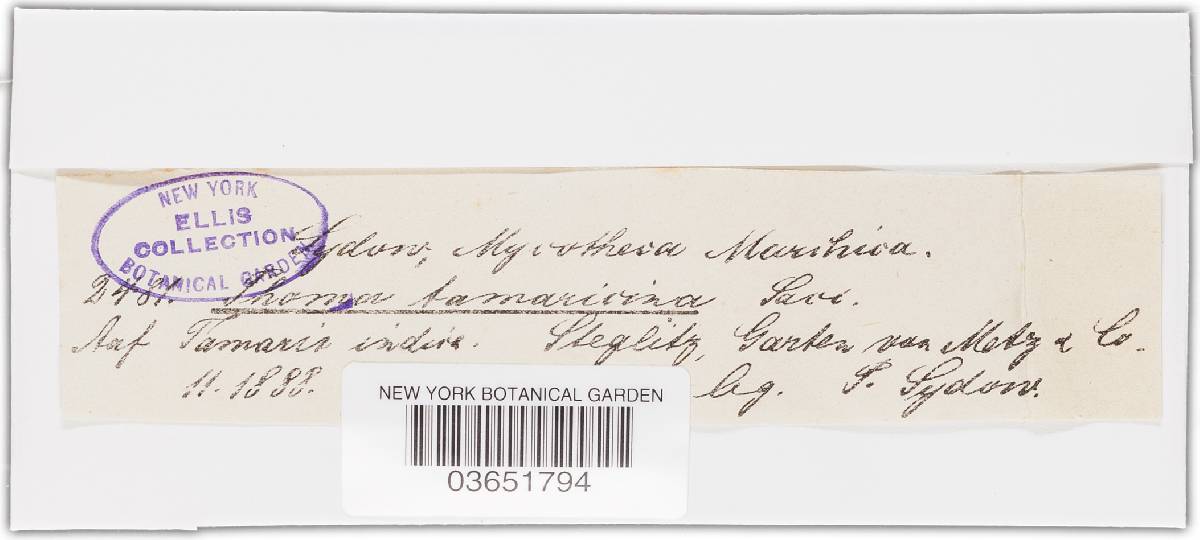 NEW YORK
ELLIS
COLLECTION
BOTANICAL GARDEN
Sydow, Mycotheca Marchica.
Phoma tamaricina Sacc.
Auf Tamarix indica. Steglitz, Garten von Metz & Co.
11. 1888. leg. P. Sydow.
NEW YORK BOTANICAL GARDEN
03651794